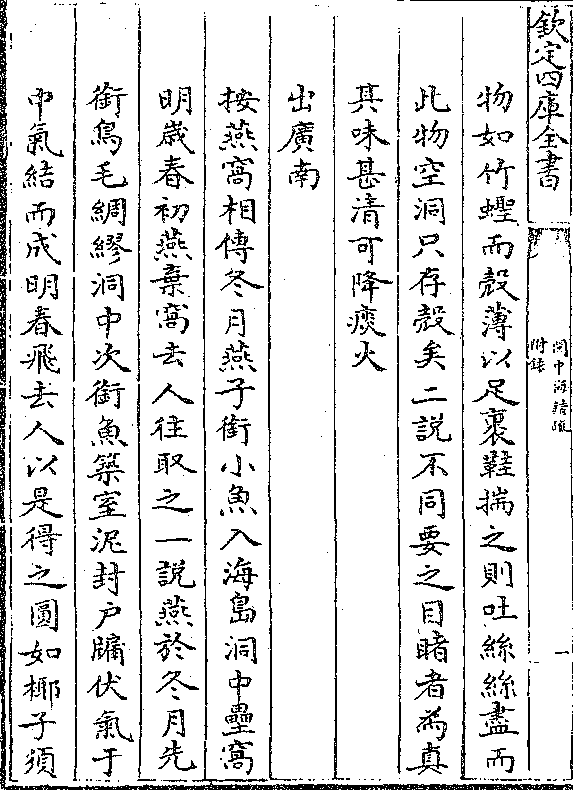 欽定四庫全書
閩中海錯疏
附錄
一
物如竹蟶而殼薄以足裹鞋揣之則吐絲絲盡而
此物空洞只存殼矣二說不同要之目睹者為真
其味甚清可降痰火
出廣南
按燕窩相傳冬月燕子銜小魚入海島洞中壘窩
明歲春初燕棄窩去人往取之一說燕於冬月先
銜鳥毛綢繆洞中次銜魚築室泥封戶牖伏氣于
中氣結而成明春飛去人以是得之圓如椰子須